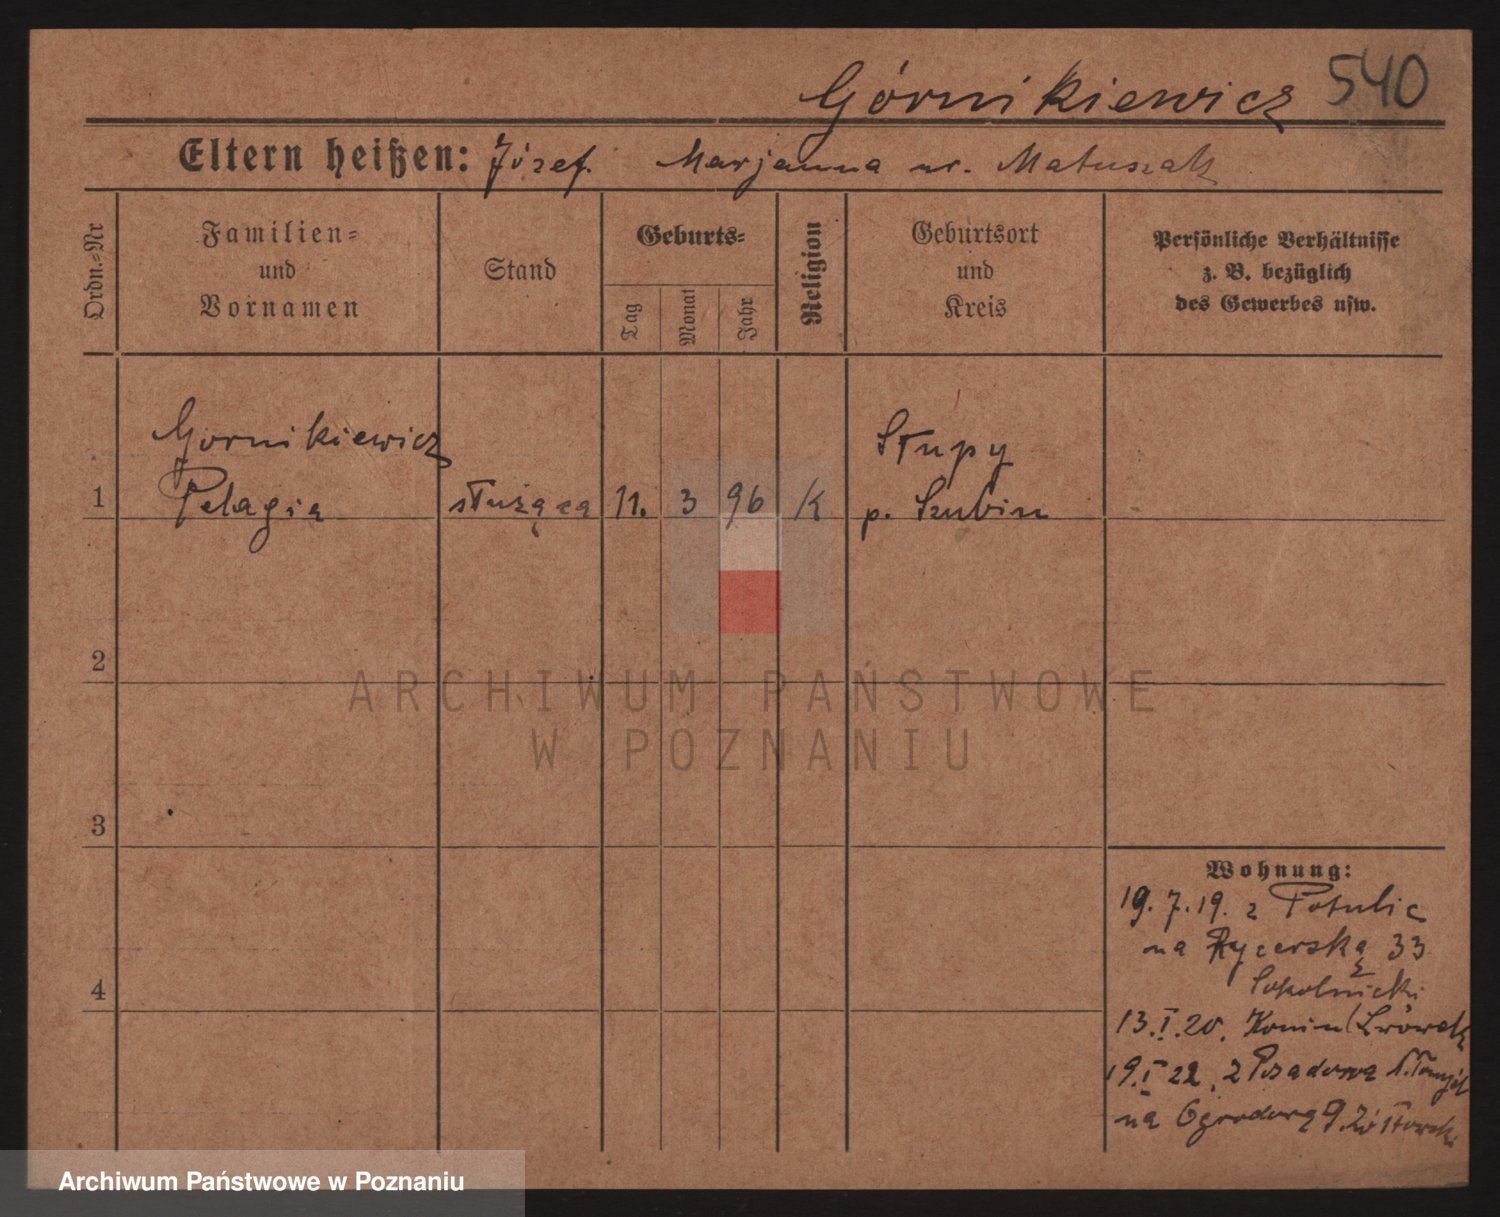 Górnikiewicz 540
Eltern heißen: Józef. Marjanna ur. Matuszak
Ordn.-Nr
Familien-
und
Vornamen
Stand
Geburts-
Tag
Monat
Jahr
Religion
Geburtsort
und
Kreis
Persönliche Verhältnisse
z. B. bezüglich
des Gewerbes usw.
Gornikiewicz Słupy
1 Pelagia służąca 11. 3 96 K p. Szubin
2
ARCHIWUM PAŃSTWOWE
W POZNANIU
3
Wohnung:
19. 7. 19. z Potulic
na Rycerską 33
Sokolnicki
4
13. I. 20. Konin (Lwówek
19. I 22. z Posadowa N. Tomyśl
na Ogrodową 9. Żółtowski
Archiwum Państwowe w Poznaniu